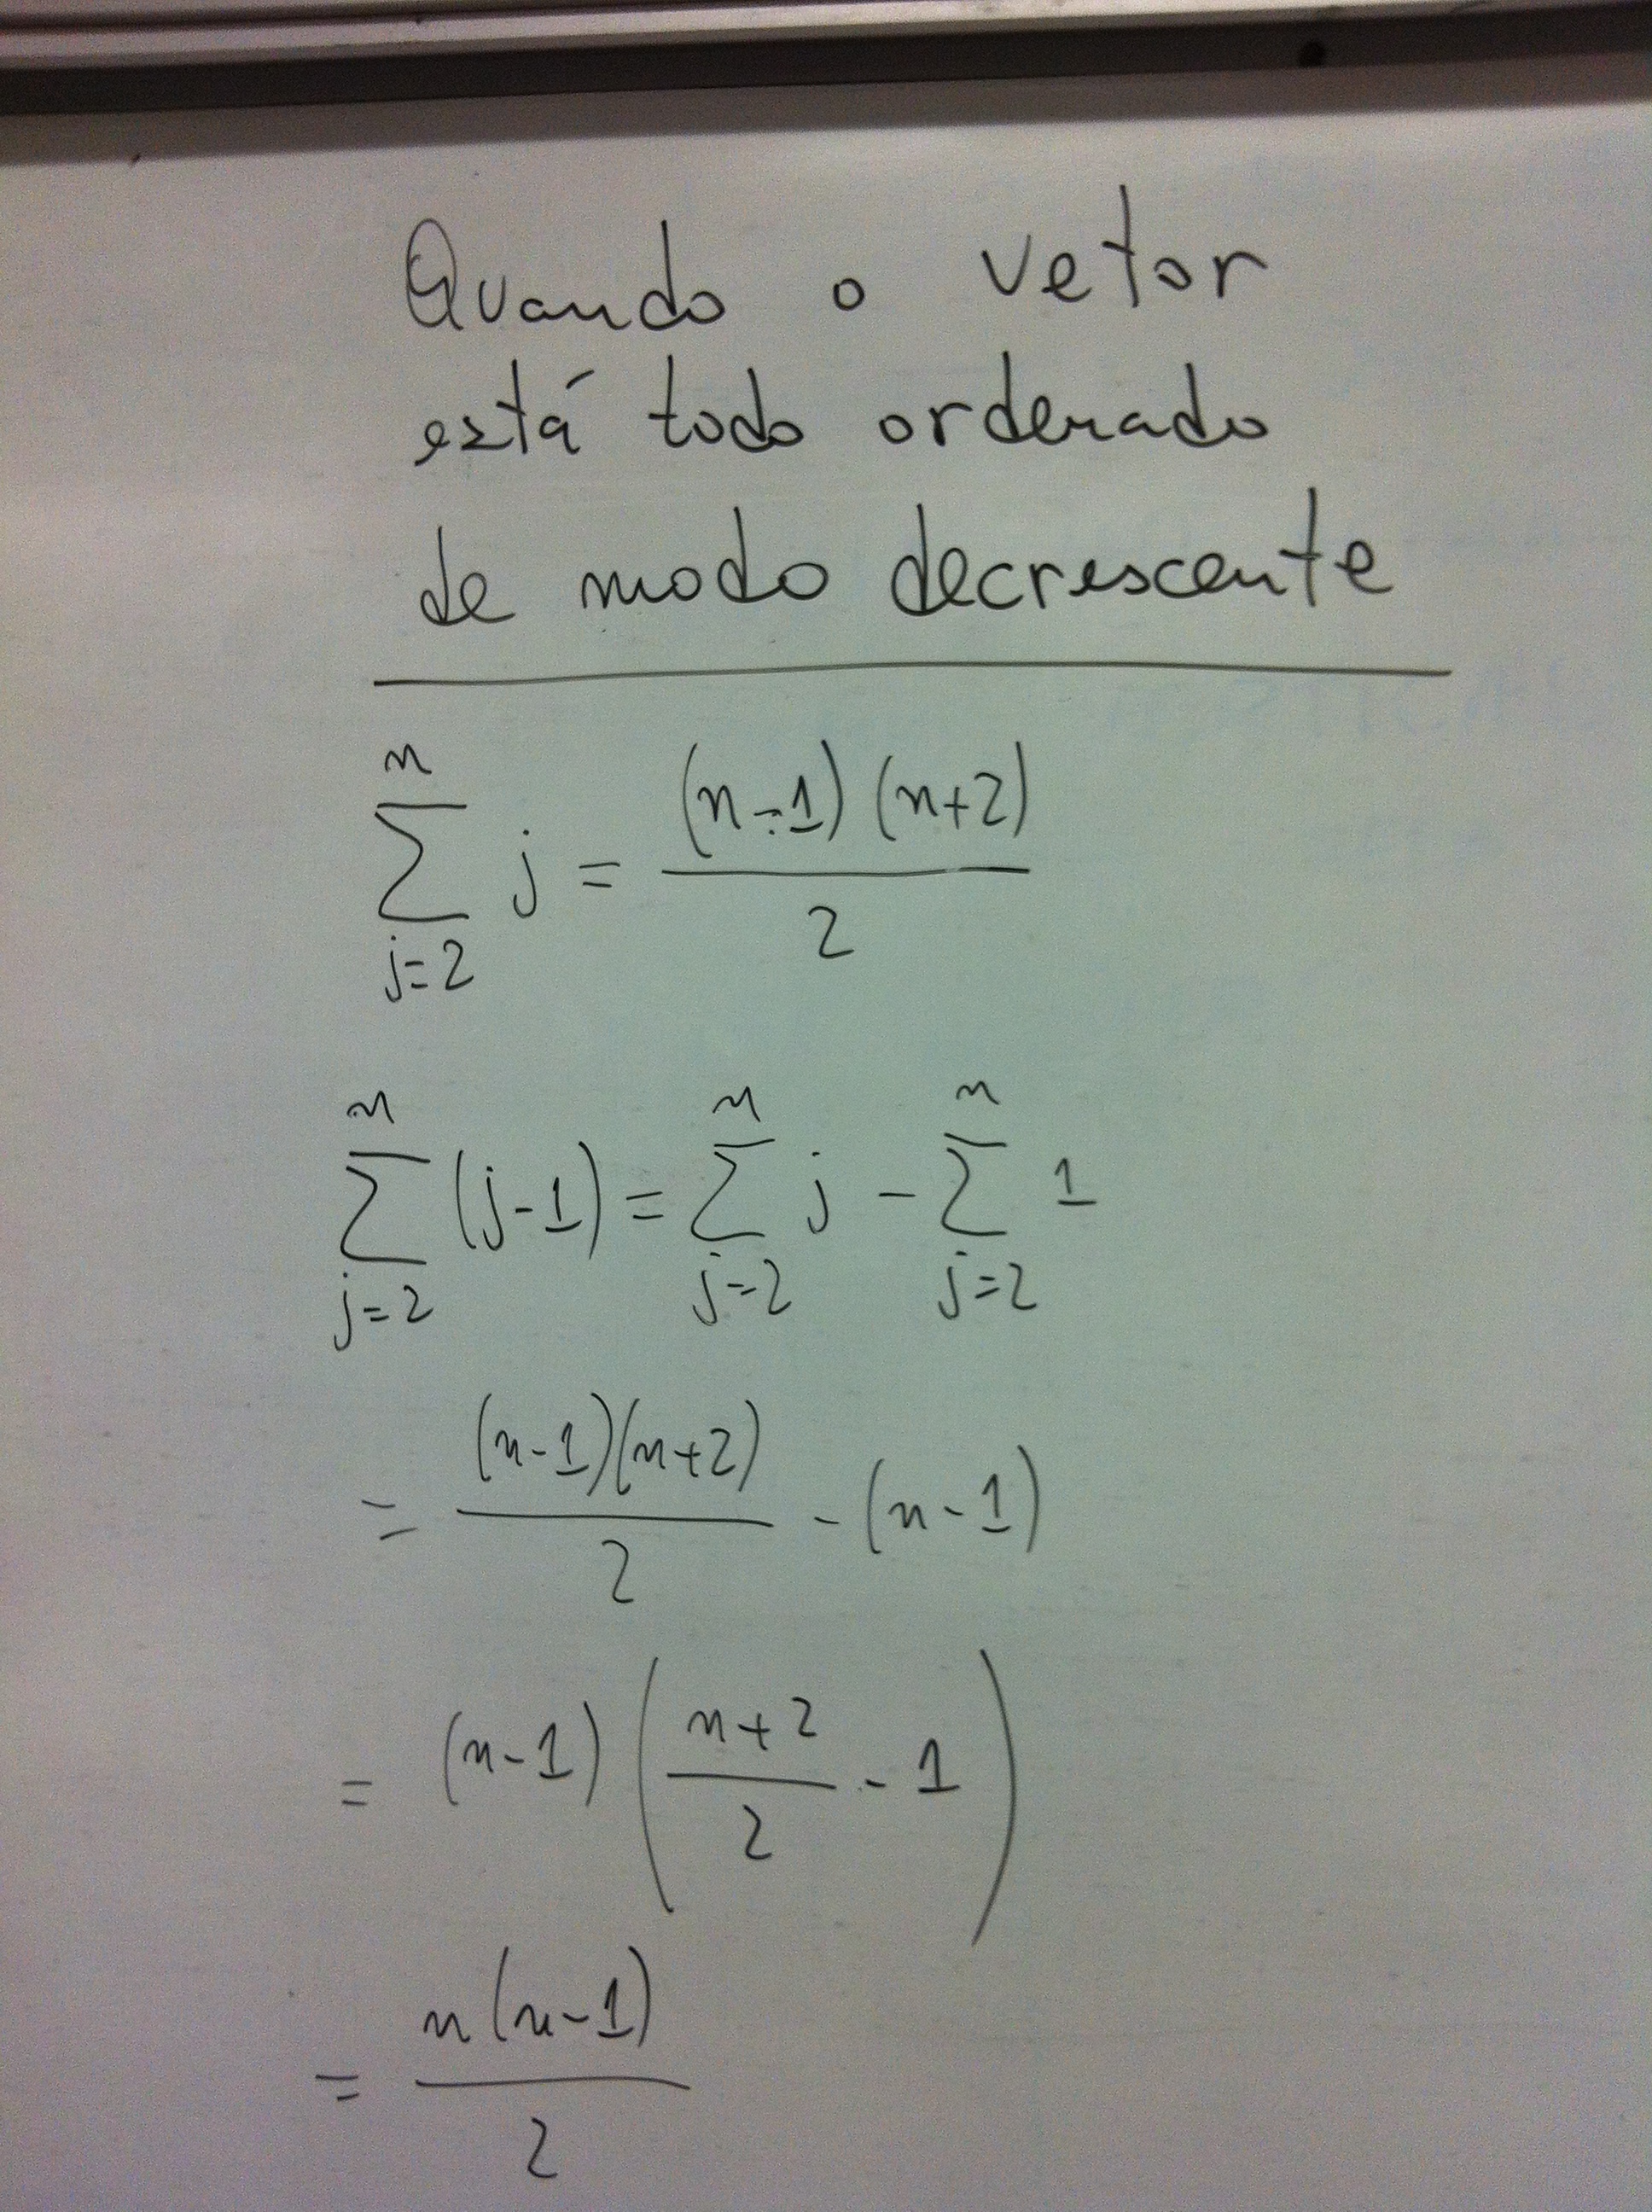 Quando o vetor
está todo ordenado
de modo decrescente
\sum_{j=2}^{n} j = \frac{(n-1)(n+2)}{2}
\sum_{j=2}^{n} (j-1) = \sum_{j=2}^{n} j - \sum_{j=2}^{n} 1
= \frac{(n-1)(n+2)}{2} - (n-1)
= (n-1) \left( \frac{n+2}{2} - 1 \right)
= \frac{n(n-1)}{2}